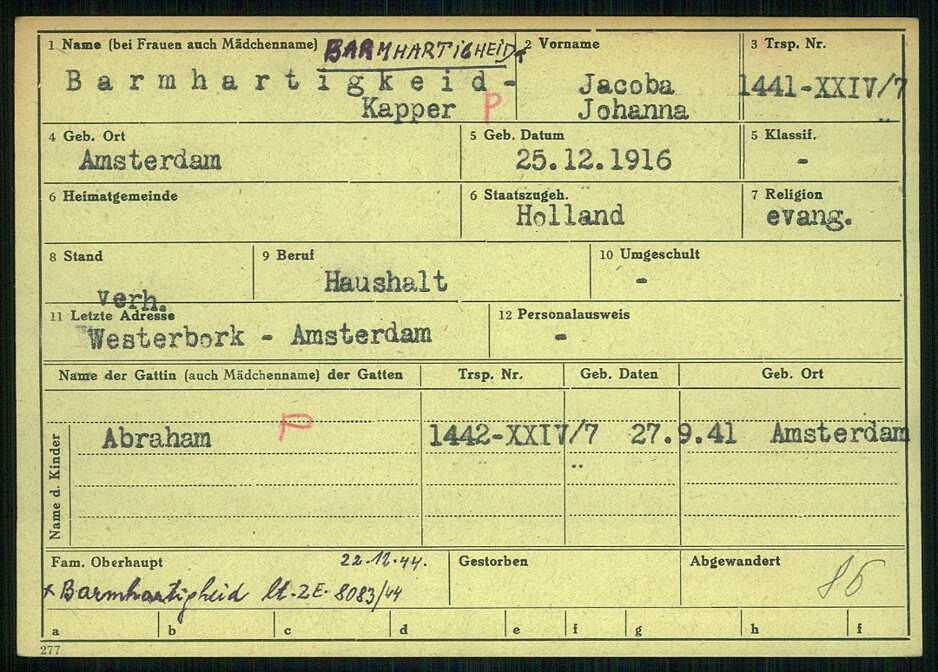 1 Name (bei Frauen auch Mädchenname) BARMHARTIGHEID x 2 Vorname 3 Trsp. Nr.
Barmhartigkeid- Jacoba 1441-XXIV/7
Kapper P Johanna
4 Geb. Ort 5 Geb. Datum 5 Klassif.
Amsterdam 25.12.1916 -
6 Heimatgemeinde 6 Staatszugeh. 7 Religion
Holland evang.
8 Stand 9 Beruf 10 Umgeschult
verh. Haushalt -
11 Letzte Adresse 12 Personalausweis
Westerbork - Amsterdam -
Name der Gattin (auch Mädchenname) der Gatten Trsp. Nr. Geb. Daten Geb. Ort
Name d. Kinder
Abraham P 1442-XXIV/7 27.9.41 Amsterdam
Fam. Oberhaupt 22.12.44. Gestorben Abgewandert
x Barmhartigheid lt. ZE-8083/44
a b c d e f g h f
277